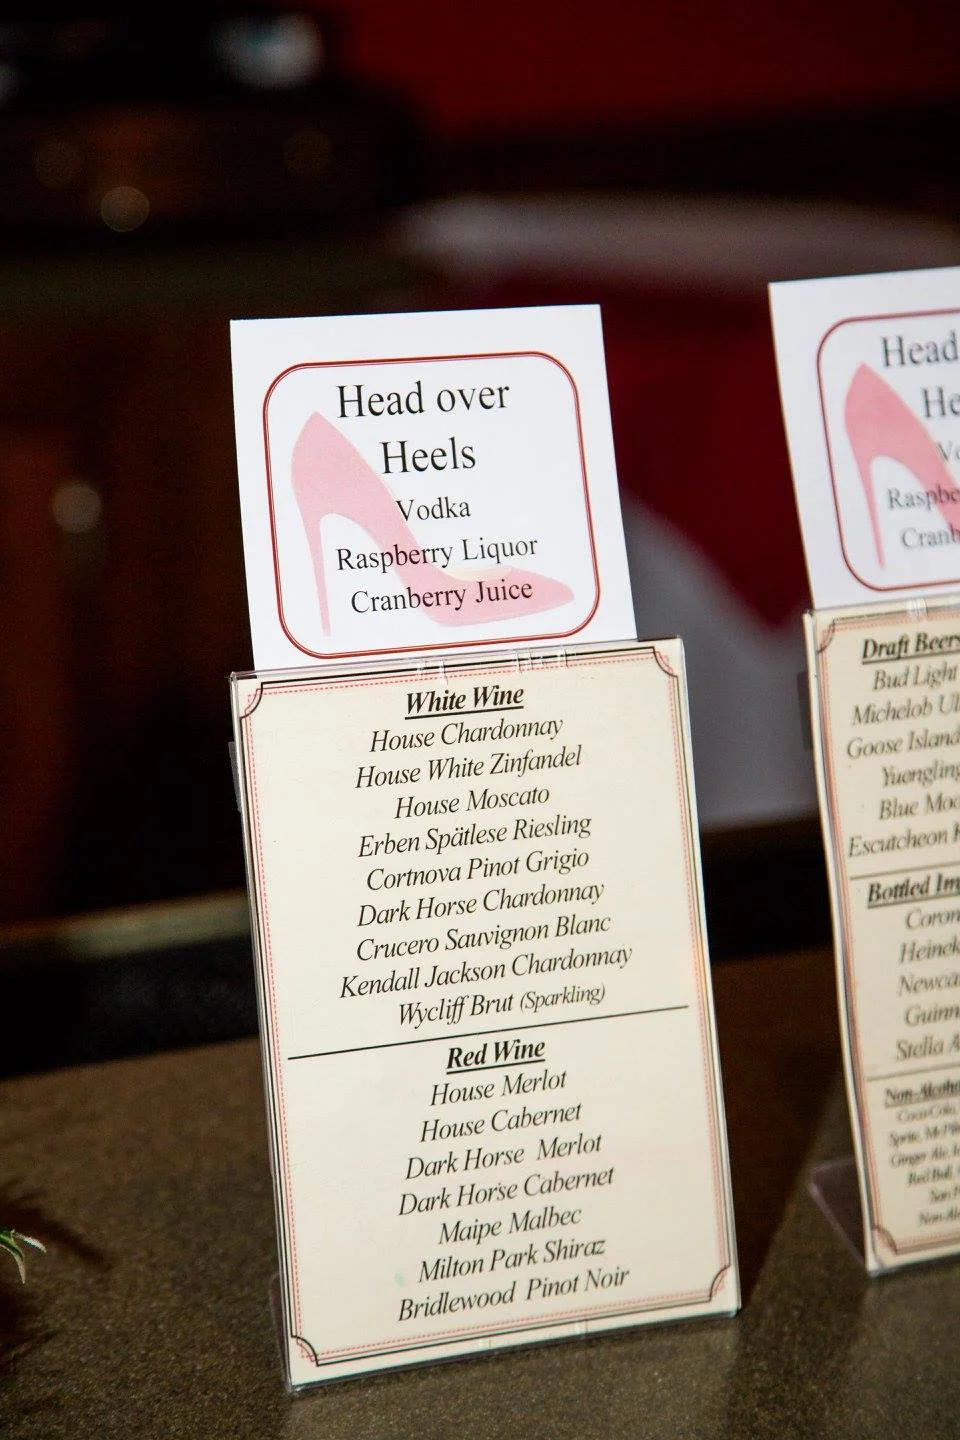 Head over
Heels
Vodka
Raspberry Liquor
Cranberry Juice
White Wine
House Chardonnay
House White Zinfandel
House Moscato
Erben Spätlese Riesling
Cortnova Pinot Grigio
Dark Horse Chardonnay
Crucero Sauvignon Blanc
Kendall Jackson Chardonnay
Wycliff Brut (Sparkling)
Red Wine
House Merlot
House Cabernet
Dark Horse Merlot
Dark Horse Cabernet
Maipe Malbec
Milton Park Shiraz
Bridlewood Pinot Noir
Head
He
Vo
Raspbe
Cranb
Draft Beers
Bud Light
Michelob Ul
Goose Island
Yuongling
Blue Moo
Escutcheon
Bottled Im
Coron
Heinek
Newca
Guinn
Stella A
Non-Alcoho
Coca-Cola,
Sprite,
Ginger Ale,
Red Bull,
Non-Al